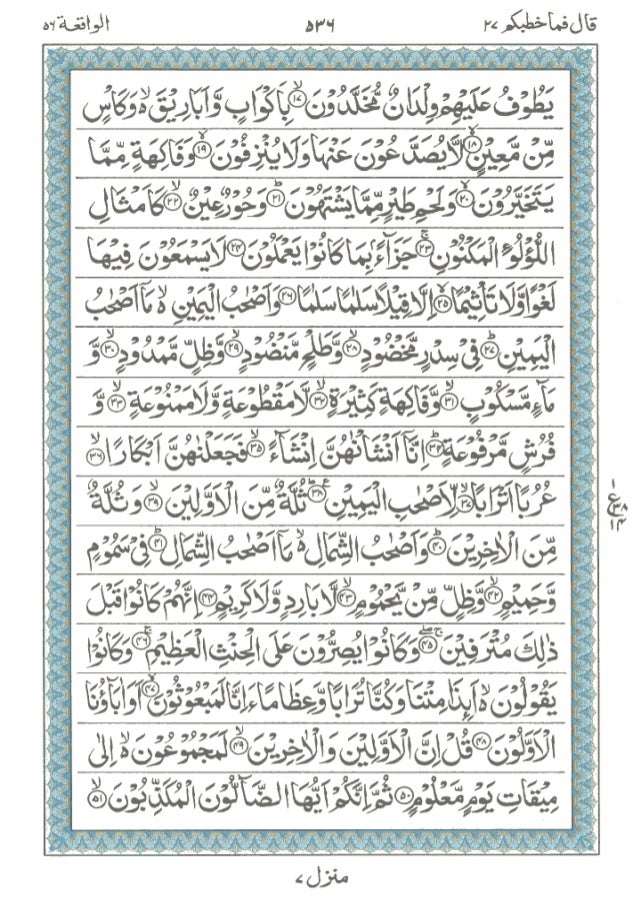 قال فما خطبكم ٢٧
٥٣٦
الواقعة ٥٦
يَطُوْفُ عَلَيْهِمْ وِلْدَانٌ مُّخَلَّدُوْنَ ۙ‏﴿۱۷﴾ بِاَكْوَابٍ وَّاَبَارِيْقَ ۙ۬ وَكَاْسٍ
مِّنْ مَّعِيْنٍ ۙ‏﴿۱۸﴾ لَّا يُصَدَّعُوْنَ عَنْهَا وَلَا يُنْزِفُوْنَ ۙ‏﴿۱۹﴾ وَفَاكِهَةٍ مِّمَّا
يَتَخَيَّرُوْنَ ۙ‏﴿۲۰﴾ وَلَحْمِ طَيْرٍ مِّمَّا يَشْتَهُوْنَ ؕ‏﴿۲۱﴾ وَحُوْرٌ عِيْنٌ ۙ‏﴿۲۲﴾ كَاَمْثَالِ
اللُّؤْلُـؤِ الْمَكْنُوْنِ ۚ‏﴿۲۳﴾ جَزَآءًۢ بِمَا كَانُوْا يَعْمَلُوْنَ ‏﴿۲۴﴾ لَا يَسْمَعُوْنَ فِيْهَا
لَغْوًا وَّلَا تَاْثِيْمًا ۙ‏﴿۲۵﴾ اِلَّا قِيْلًا سَلٰمًا سَلٰمًا ‏﴿۲۶﴾ وَاَصْحٰبُ الْيَمِيْنِ ۙ۬ مَاۤ اَصْحٰبُ
الْيَمِيْنِ ؕ‏﴿۲۷﴾ فِىْ سِدْرٍ مَّخْضُوْدٍ ۙ‏﴿۲۸﴾ وَّطَلْحٍ مَّنْضُوْدٍ ۙ‏﴿۲۹﴾ وَّظِلٍّ مَّمْدُوْدٍ ۙ‏﴿۳۰﴾ وَّ
مَآءٍ مَّسْكُوْبٍ ۙ‏﴿۳۱﴾ وَّفَاكِهَةٍ كَثِيْرَةٍ ۙ‏﴿۳۲﴾ لَّا مَقْطُوْعَةٍ وَّلَا مَمْنُوْعَةٍ ۙ‏﴿۳۳﴾ وَّ
فُرُشٍ مَّرْفُوْعَةٍ ؕ‏﴿۳۴﴾ اِنَّاۤ اَنْشَاْنٰهُنَّ اِنْشَآءً ۙ‏﴿۳۵﴾ فَجَعَلْنٰهُنَّ اَبْكَارًا ۙ‏﴿۳۶﴾
عُرُبًا اَتْرَابًا ۙ‏﴿۳۷﴾ لِّاَصْحٰبِ الْيَمِيْنِ ؕ‏﴿۳۸﴾ ثُلَّةٌ مِّنَ الْاَوَّلِيْنَ ۙ‏﴿۳۹﴾ وَثُلَّةٌ
مِّنَ الْاٰخِرِيْنَ ؕ‏﴿۴۰﴾ وَاَصْحٰبُ الشِّمَالِ ۙ۬ مَاۤ اَصْحٰبُ الشِّمَالِ ؕ‏﴿۴۱﴾ فِىْ سَمُوْمٍ
وَّحَمِيْمٍ ۙ‏﴿۴۲﴾ وَّظِلٍّ مِّنْ يَّحْمُوْمٍ ۙ‏﴿۴۳﴾ لَّا بَارِدٍ وَّلَا كَرِيْمٍ ‏﴿۴۴﴾ اِنَّهُمْ كَانُوْا قَبْلَ
ذٰلِكَ مُتْرَفِيْنَ ۚۖ‏﴿۴۵﴾ وَكَانُوْا يُصِرُّوْنَ عَلَى الْحِنْثِ الْعَظِيْمِ ۚ‏﴿۴۶﴾ وَكَانُوْا
يَقُوْلُوْنَ ۙ۬ اَئِذَا مِتْنَا وَكُنَّا تُرَابًا وَّعِظَامًا ءَاِنَّا لَمَبْعُوْثُوْنَ ۙ‏﴿۴۷﴾ اَوَاٰبَآؤُنَا
الْاَوَّلُوْنَ ‏﴿۴۸﴾ قُلْ اِنَّ الْاَوَّلِيْنَ وَالْاٰخِرِيْنَ ۙ‏﴿۴۹﴾ لَمَجْمُوْعُوْنَ ۙ۬ اِلٰى
مِيْقَاتِ يَوْمٍ مَّعْلُوْمٍ ‏﴿۵۰﴾ ثُمَّ اِنَّكُمْ اَيُّهَا الضَّآلُّوْنَ الْمُكَذِّبُوْنَ ۙ‏﴿۵۱﴾
١
ع
٣٨
١٤
منزل ٧